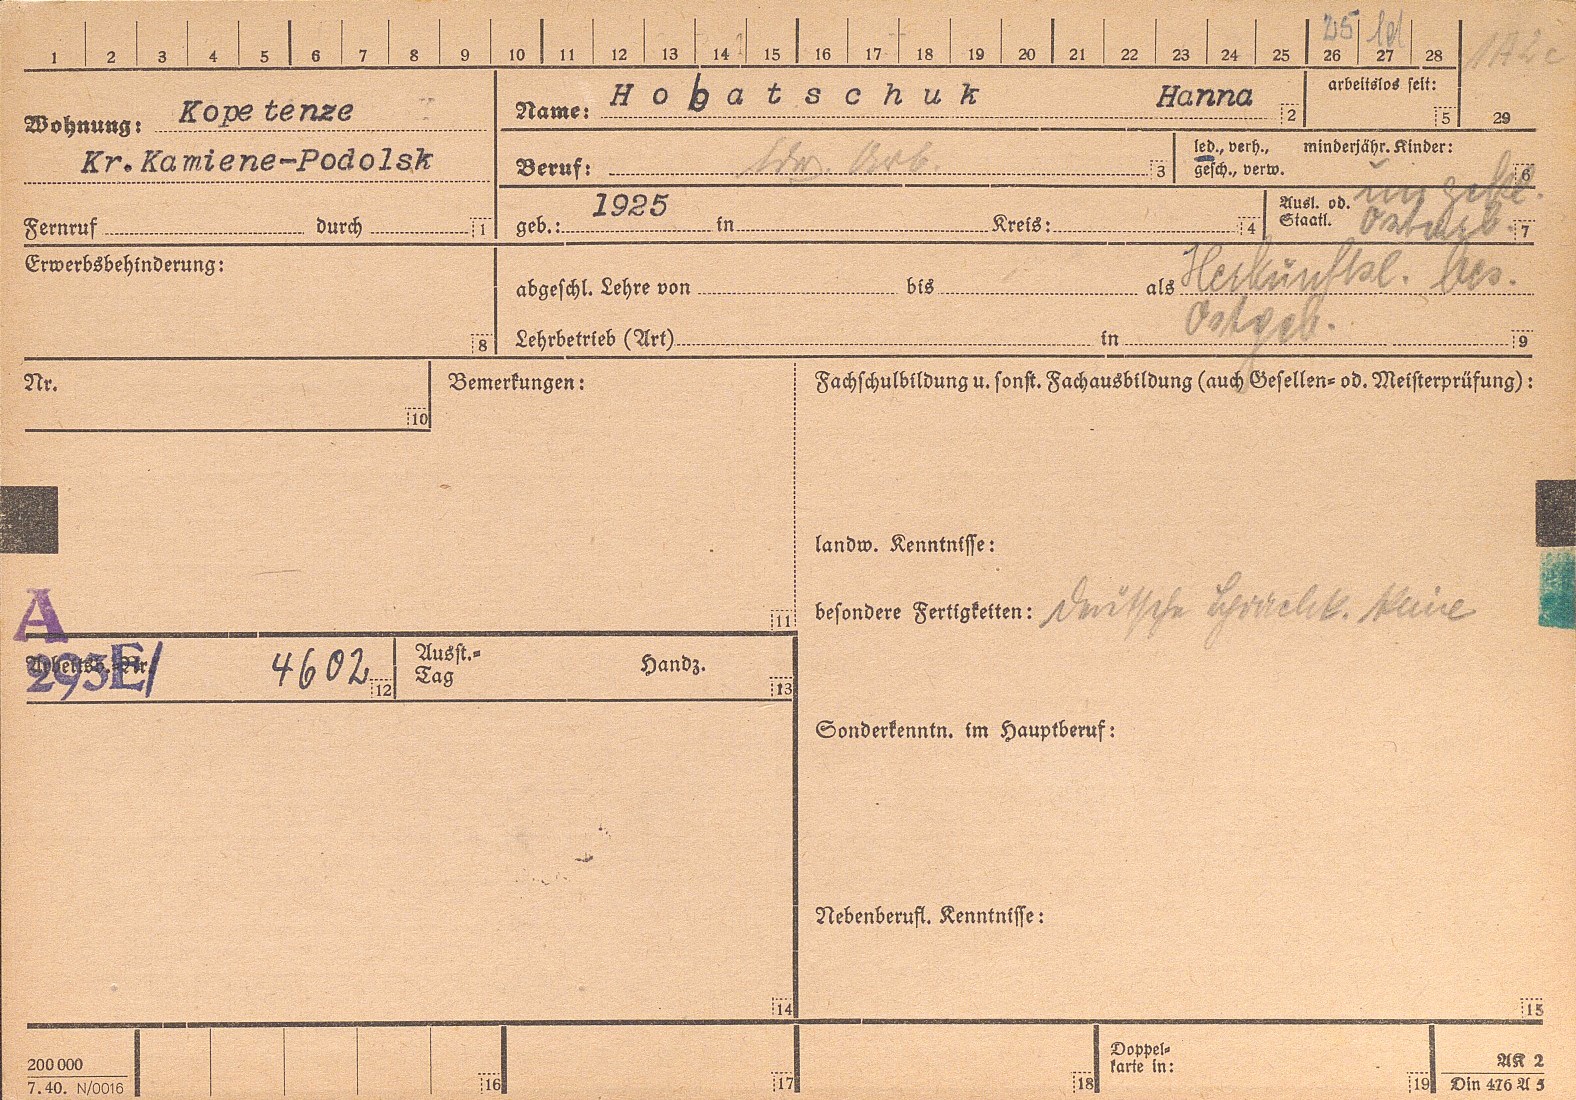 1 2 3 4 5 6 7 8 9 10 11 12 13 14 15 16 17 18 19 20 21 22 23 24 25 26 27 28 29
25 led
1A2c
Wohnung: Kopetenze
Kr.Kamiene-Podolsk
Fernruf durch 1
Name: Hobatschuk Hanna 2
arbeitslos seit: 5
Beruf: ldw. Arb. 3
led., verh., gesch., verw.
minderjähr. Kinder: 6
geb.: 1925 in Kreis: 4
Ausl. od. Staatl. ungekl. 
Ostarb. 7
Erwerbsbehinderung: 8
abgeschl. Lehre von bis als Herkunftsl. bes.
Ostgeb.
Lehrbetrieb (Art) in 9
Nr. 10
Bemerkungen: 11
Fachschulbildung u. sonst. Fachausbildung (auch Gesellen= od. Meisterprüfung):
landw. Kenntnisse:
besondere Fertigkeiten: deutsche Sprachk. keine
A
293E/
Arbeitsb.=Nr. 4602 12
Ausst.=
Tag
Handz. 13
Sonderkenntn. im Hauptberuf:
Nebenberufl. Kenntnisse:
14
15
200 000
7.40. N/0016
16
17
18
Doppel=
karte in: 19
AK 2
Din 476 A 5